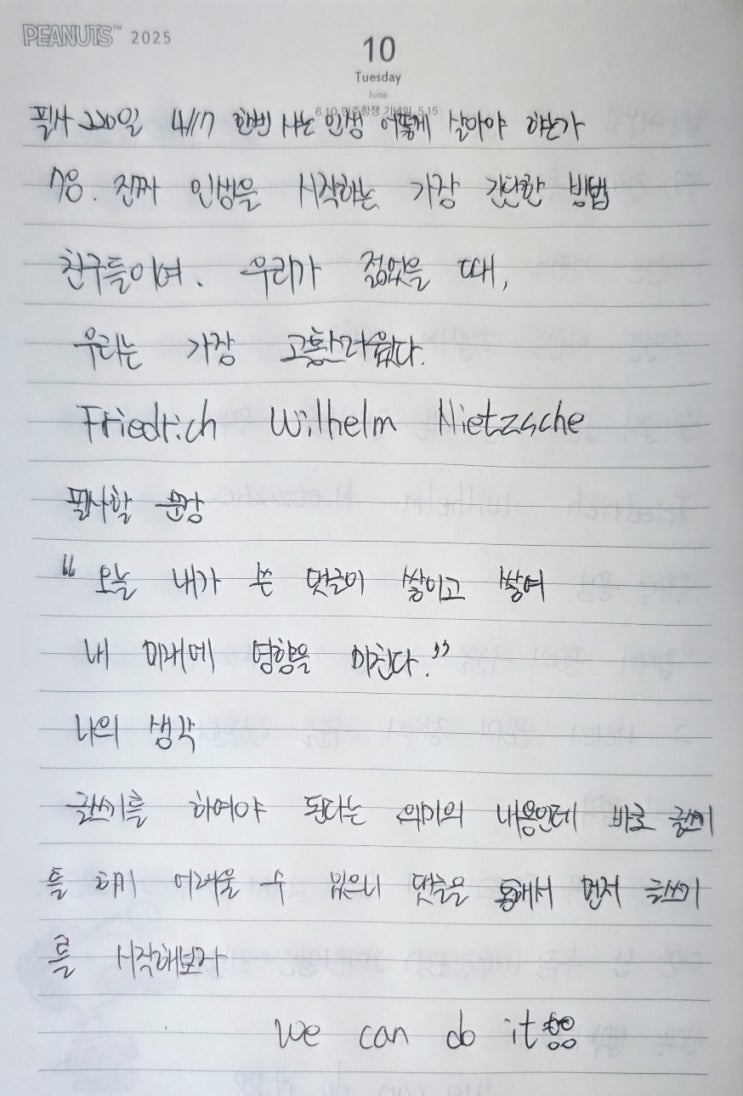 PEANUTS™ 2025
10
Tuesday
June
6.10 민주항쟁 기념일, 5.15
필사 220일 4/17 한번 사는 인생 어떻게 살아야 하는가
78. 진짜 인생을 시작하는 가장 간단한 방법
친구들이여. 우리가 젊었을 때,
우리는 가장 고통스러웠다.
Friedrich Wilhelm Nietzsche
필사할 문장
"오늘 내가 쓴 댓글이 쌓이고 쌓여
내 미래에 영향을 미친다."
나의 생각
글쓰기를 하여야 된다는 의미의 내용인데 바로 글쓰기
를 하기 어려울 수 있으니 댓글을 통해서 먼저 글쓰기
를 시작해보자
We can do it